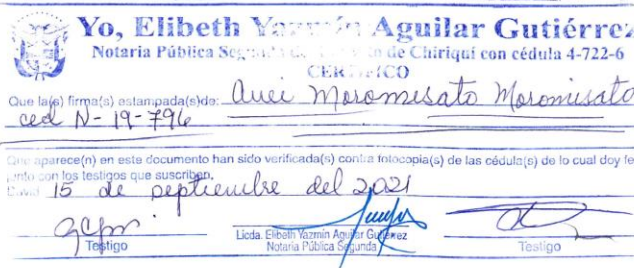 Yo, Elibeth Yazmín Aguilar Gutiérrez
Notaria Pública Segunda de Chiriquí con cédula 4-722-6
CERTIFICO
Que la(s) firma(s) estampada(s) de: Moromisato Moromisato
ced N-19-796
Que aparece(n) en este documento han sido verificada(s) contra fotocopia(s) de las cédula(s) de lo cual doy fe
junto con los testigos que suscriben,
David 15 de septiembre del 2021
Testigo
Licda. Elibeth Yazmín Aguilar Gutiérrez
Notaria Pública Segunda
Testigo